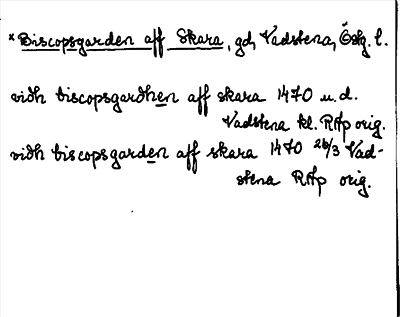 * Biscopsgarden aff Skara, gd, Vadstena, Östg. l.
vidh biscopsgardhen aff skara 1470 u.d.
Vadstena kl. RAp orig.
vidh biscopsgarden aff skara 1470 26/3 Vad-
stena RAp orig.